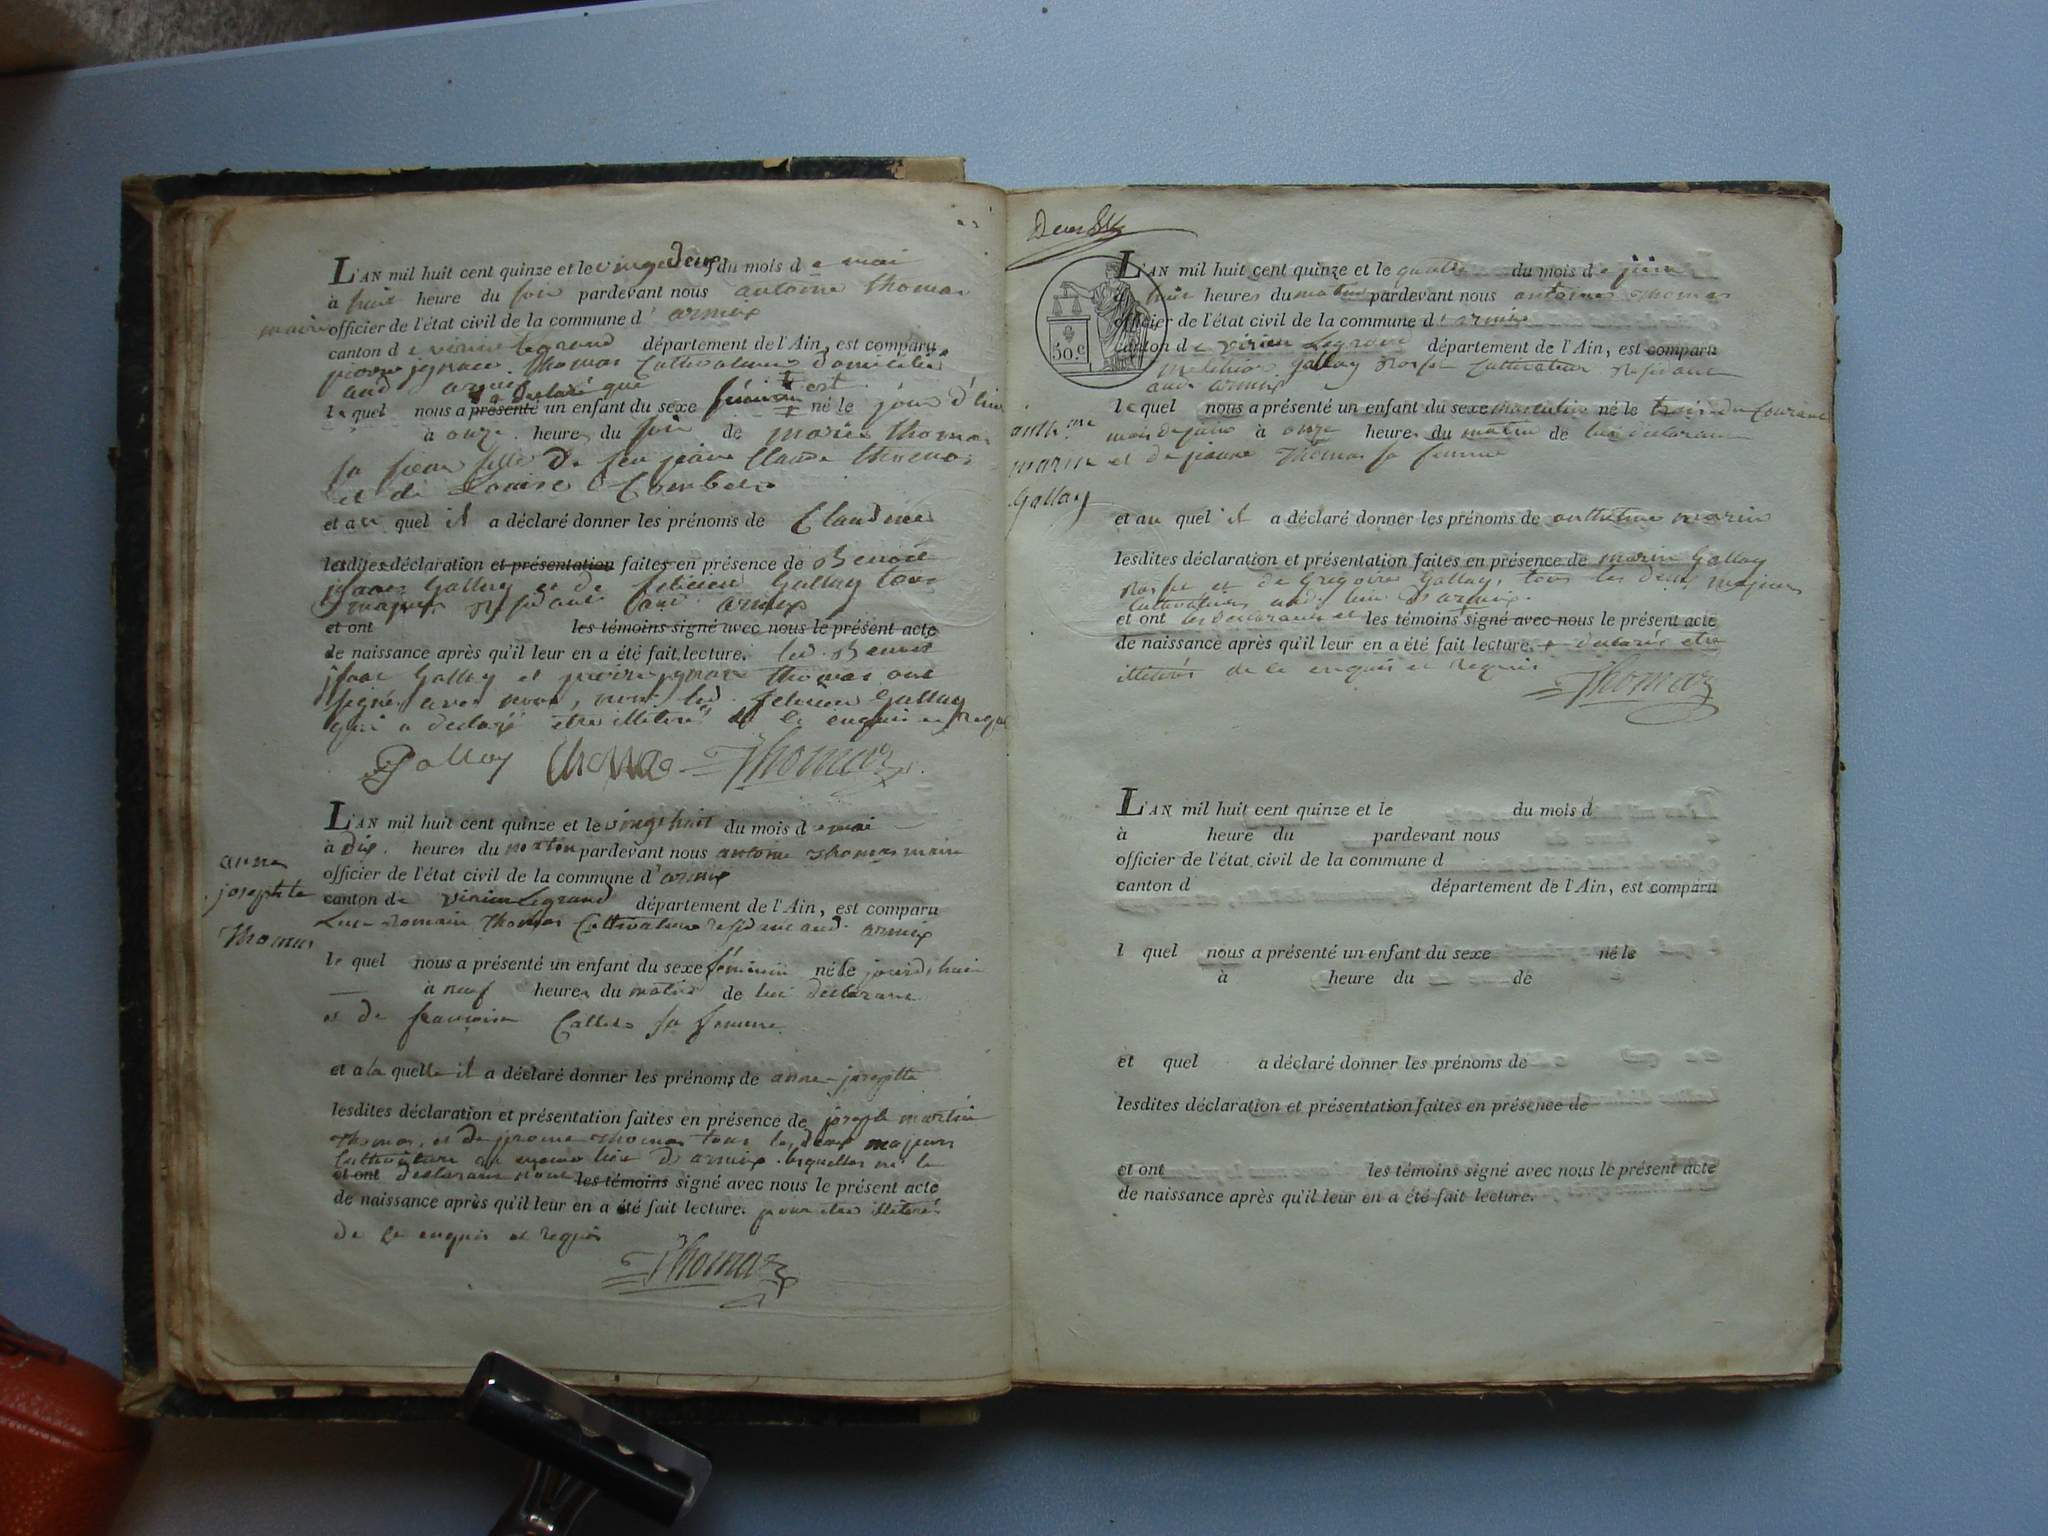 L'AN mil huit cent quinze et le vingt deux du mois de mai
à huit heure du soir pardevant nous antoine thomas
maire officier de l'état civil de la commune d'armix
canton de virieu legrand département de l'Ain, est comparu
pierre ignace thomas Cultivateur domicilié
aud armix a déclaré que
le quel nous a présenté un enfant du sexe féminin est né le jour d'hier
à onze heures du soir de marie thomas
sa sœur fille de feu jean Claude thomas
et de Louise
et au quel il a déclaré donner les prénoms de Claudine
lesdites déclaration et présentation faites en présence de Benoit
isaac Gallay et de felicien Gallay tous
majeurs aud armix
et ont les témoins signé avec nous le présent acte
de naissance après qu'il leur en a été fait lecture. led. Benoit
isaac Gallay et pierre ignace thomas ont
signé avec nous, non led. felicien Gallay
qui a déclaré etre illetéré de ce enquis et requis
Gallay thomas Thomas
L'AN mil huit cent quinze et le vingt huit du mois de mai
à dix heures du matin pardevant nous antoine thomas maire
officier de l'état civil de la commune d'armix
canton de virieu Legrand département de l'Ain, est comparu
Luc romain thomas Cultivateur residant aud. armix
anne
josephte
Thomas
le quel nous a présenté un enfant du sexe féminin né le jourd'huis
à neuf heures du matin de lui déclarant
et de francoise sa femme
et a la quelle il a déclaré donner les prénoms de anne josephte
lesdites déclaration et présentation faites en présence de joseph martin
thomas, et de thomas tous les deux majeurs
Cultivateurs au meme lieu d'armix. lesquelles ni le
et ont déclarant n'ont les témoins signé avec nous le présent acte
de naissance après qu'il leur en a été fait lecture. pour etre illetérés
de ce enquis et requis
Thomas
50.c
L'AN mil huit cent quinze et le quatre du mois de juin
à huit heures du matin pardevant nous antoine thomas
officier de l'état civil de la commune d'armix
canton de virieu Legrand département de l'Ain, est comparu
melchior Gallay Cultivateur residant
aud armix
le quel nous a présenté un enfant du sexe masculin né le trois du Courant
mois de juin à onze heures du matin de lui déclarant
et de jeanne Thomas sa femme
anthme
marin
Gallay
et au quel il a déclaré donner les prénoms de anthelme marin
lesdites déclaration et présentation faites en présence de marin Gallay
et de Gregoire Gallay, tous les deux majeurs
Cultivateurs aud. lieu d'armix.
et ont les déclarant et les témoins signé avec nous le présent acte
de naissance après qu'il leur en a été fait lecture. déclarés etre
illetérés de ce enquis et requis
Thomas
L'AN mil huit cent quinze et le du mois d
à heure du pardevant nous
officier de l'état civil de la commune d
canton d département de l'Ain, est comparu
l quel nous a présenté un enfant du sexe né le
à heure du de
et quel a déclaré donner les prénoms de
lesdites déclaration et présentation faites en présence de
et ont les témoins signé avec nous le présent acte
de naissance après qu'il leur en a été fait lecture.